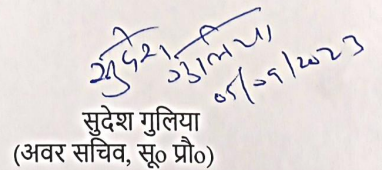 सुदेश गुलिया
05/09/2023
सुदेश गुलिया
(अवर सचिव, सू० प्रौ०)